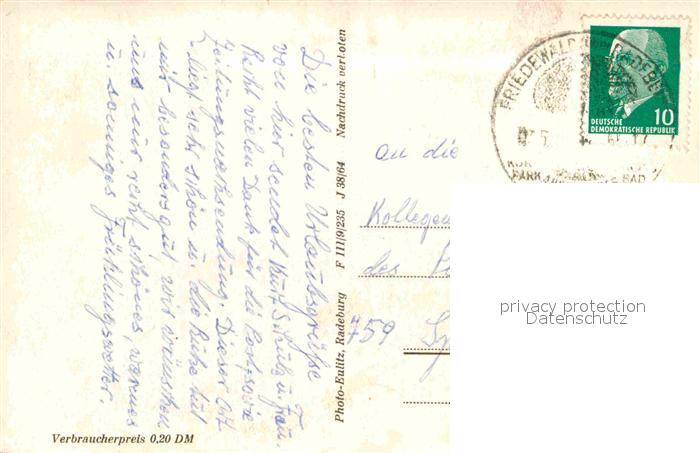 Die besten Urlaubsgrüße
von hier sendet Kurt Schulz u. Frau.
Recht vielen Dank für die Portosow
Zeitungsnachsendung. Dieser Ort
liegt sehr schön u. die Ruhe tut
uns besonders gut. wir wünschen
uns nur recht schönes, warmes
u. sonniges Frühlingswetter.
Verbraucherpreis 0,20 DM
Photo-Eulitz, Radeburg F III/9/235 J 38/64 Nachdruck verboten
FRIEDEWALD
KUR
PARK BAD
10
DEUTSCHE
DEMOKRATISCHE REPUBLIK
an die
Kollegen
des
759
privacy protection
Datenschutz